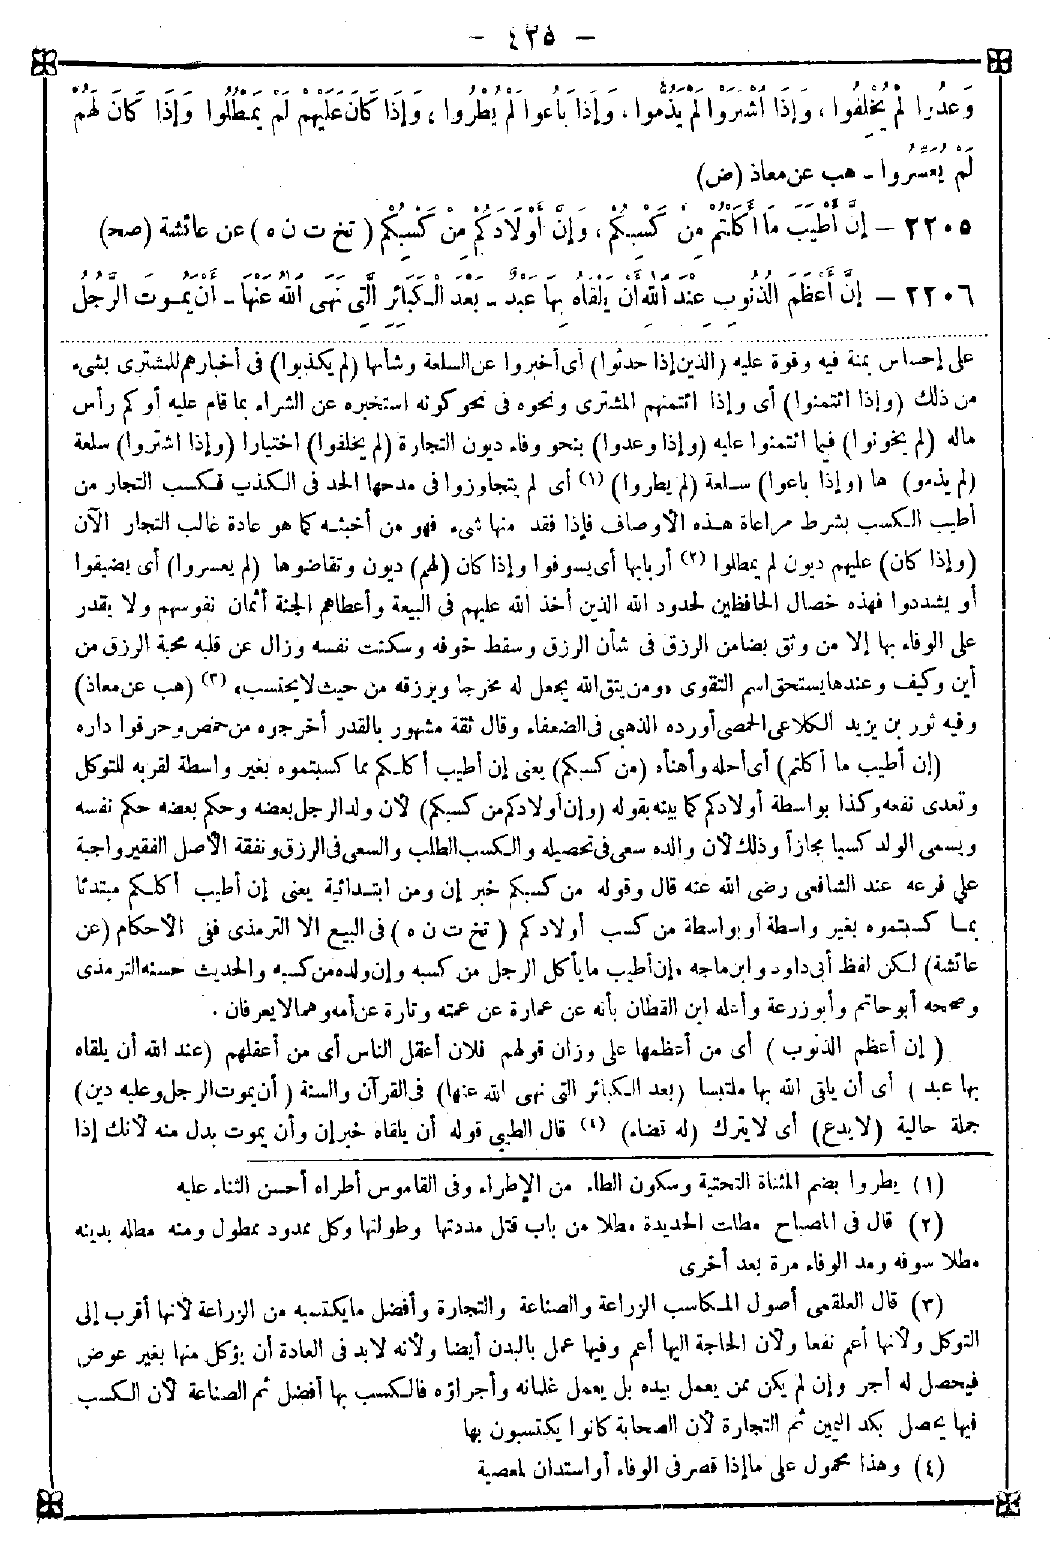 - ٤٢٥ -
وَعَدُوا لَمْ يُخْلِفُوا، وَإِذَا اشْتَرَوْا لَمْ يَذُمُّوا، وَإِذَا بَاعُوا لَمْ يُطْرُوا، وَإِذَا كَانَ عَلَيْهِمْ لَمْ يَمْطُلُوا وَإِذَا كَانَ لَهُمْ
لَمْ يُعَسِّرُوا - هب عن معاذ (ض)
٢٢٠٥ - إِنَّ أَطْيَبَ مَا أَكَلْتُمْ مِنْ كَسْبِكُمْ، وَإِنَّ أَوْلَادَكُمْ مِنْ كَسْبِكُمْ (تخ ت ن ه) عن عائشة (صحـ)
٢٢٠٦ - إِنَّ أَعْظَمَ الذُّنُوبِ عِنْدَ اللهِ أَنْ يَلْقَاهُ بِهَا عَبْدٌ - بَعْدَ الْكَبَائِرِ الَّتِي نَهَى اللهُ عَنْهَا - أَنْ يَمُوتَ الرَّجُلُ
على إحساس يمنة فيه وقوة عليه (الذين إذا حدثوا) أى أخبروا عن السلعة وشأنها (لم يكذبوا) فى أخبارهم للمشترى بشىء
من ذلك (وإذا ائتمنوا) أى وإذا ائتمنهم المشترى ونحوه فى نحو كونه استخبره عن الشراء بما قام عليه أو كم رأس
ماله (لم يخونوا) فيما ائتمنوا عليه (وإذا وعدوا) بنحو وفاء ديون التجارة (لم يخلفوا) اختيارا (وإذا اشتروا) سلعة
(لم يذمو) ها (وإذا باعوا) سلعة (لم يطروا) (١) أى لم يتجاوزوا فى مدحها الحد فى الكذب فكسب التجار من
أطيب الكسب بشرط مراعاة هذه الأوصاف فإذا فقد منها شىء فهو من أخبثه كما هو عادة غالب التجار الآن
(وإذا كان) عليهم ديون لم يمطلوا (٢) أربابها أى يسوفوا وإذا كان (لهم) ديون وتقاضوها (لم يعسروا) أى يضيقوا
أو يشددوا فهذه خصال الحافظين لحدود الله الذين أخذ الله عليهم فى البيعة وأعطاهم الجنة أثمان نفوسهم ولا يقدر
على الوفاء بها إلا من وثق بضامن الرزق فى شأن الرزق وسقط خوفه وسكنت نفسه وزال عن قلبه محبة الرزق من
أين وكيف وعندها يستحق اسم التقوى «ومن يتق الله يجعل له مخرجا ويرزقه من حيث لا يحتسب» (٣) (هب عن معاذ)
وفيه ثور بن يزيد الكلاعى الحمصى أورده الذهبى فى الضعفاء وقال ثقة مشهور بالقدر أخرجوه من حمص وحرقوا داره
(إن أطيب ما أكلتم) أى أحله وأهنأه (من كسبكم) يعنى إن أطيب أكلكم مما كسبتموه بغير واسطة لقربه للتوكل
وتعدى نفعه وكذا بواسطة أولادكم كما بينه بقوله (وإن أولادكم من كسبكم) لأن ولد الرجل بعضه وحكم بعضه حكم نفسه
ويسمى الولد كسبا مجازاً وذلك لأن والده سعى فى تحصيله والكسب الطلب والسعى فى الرزق ونفقة الأصل الفقير واجبة
على فرعه عند الشافعى رضى الله عنه قال وقوله من كسبكم خبر إن ومن ابتدائية يعنى إن أطيب أكلكم مبتدئا
بما كسبتموه بغير واسطة أو بواسطة من كسب أولادكم (تخ ت ن ه) فى البيع الا الترمذى ففى الأحكام (عن
عائشة) لكن لفظ أبى داود وابن ماجه «إن أطيب ما يأكل الرجل من كسبه وإن ولده من كسبه والحديث حسنه الترمذى
وصححه أبو حاتم وأبو زرعة وأعله ابن القطان بأنه عن عمارة عن عمته وتارة عن أمه وهما لا يعرفان.
(إن أعظم الذنوب) أى من أعظمها على وزان قولهم فلان أعقل الناس أى من أعقلهم (عند الله أن يلقاه
بها عبد) أى أن يلقى الله بها ملتبسا (بعد الكبائر التى نهى الله عنها) فى القرآن والسنة (أن يموت الرجل وعليه دين)
جملة حالية (لا يدع) أى لا يترك (له قضاء) (٤) قال الطيبى قوله أن يلقاه خبر إن وأن يموت بدل منه لأنك إذا
(١) يطروا بضم المثناة التحتية وسكون الطاء من الإطراء وفى القاموس أطراه أحسن الثناء عليه
(٢) قال فى المصباح مطلت الحديدة مطلا من باب قتل مددتها وطولتها وكل ممدود ممطول ومنه مطله بدينه
مطلا سوفه ومد الوفاء مرة بعد أخرى
(٣) قال العلقمى أصول المكاسب الزراعة والصناعة والتجارة وأفضل ما يكتسبه من الزراعة لأنها أقرب إلى
التوكل ولأنها أعم نفعا ولأن الحاجة اليها أعم وفيها عمل بالبدن أيضا ولأنه لابد فى العادة أن يؤكل منها بغير عوض
فيحصل له أجر وإن لم يكن ممن يعمل بيده بل يعمل غلمانه وأجراؤه فالكسب بها أفضل ثم الصناعة لأن الكسب
فيها يحصل بكد اليمين ثم التجارة لأن الصحابة كانوا يكتسبون بها
(٤) وهذا محمول على ما إذا قصر فى الوفاء أو استدان لمعصية